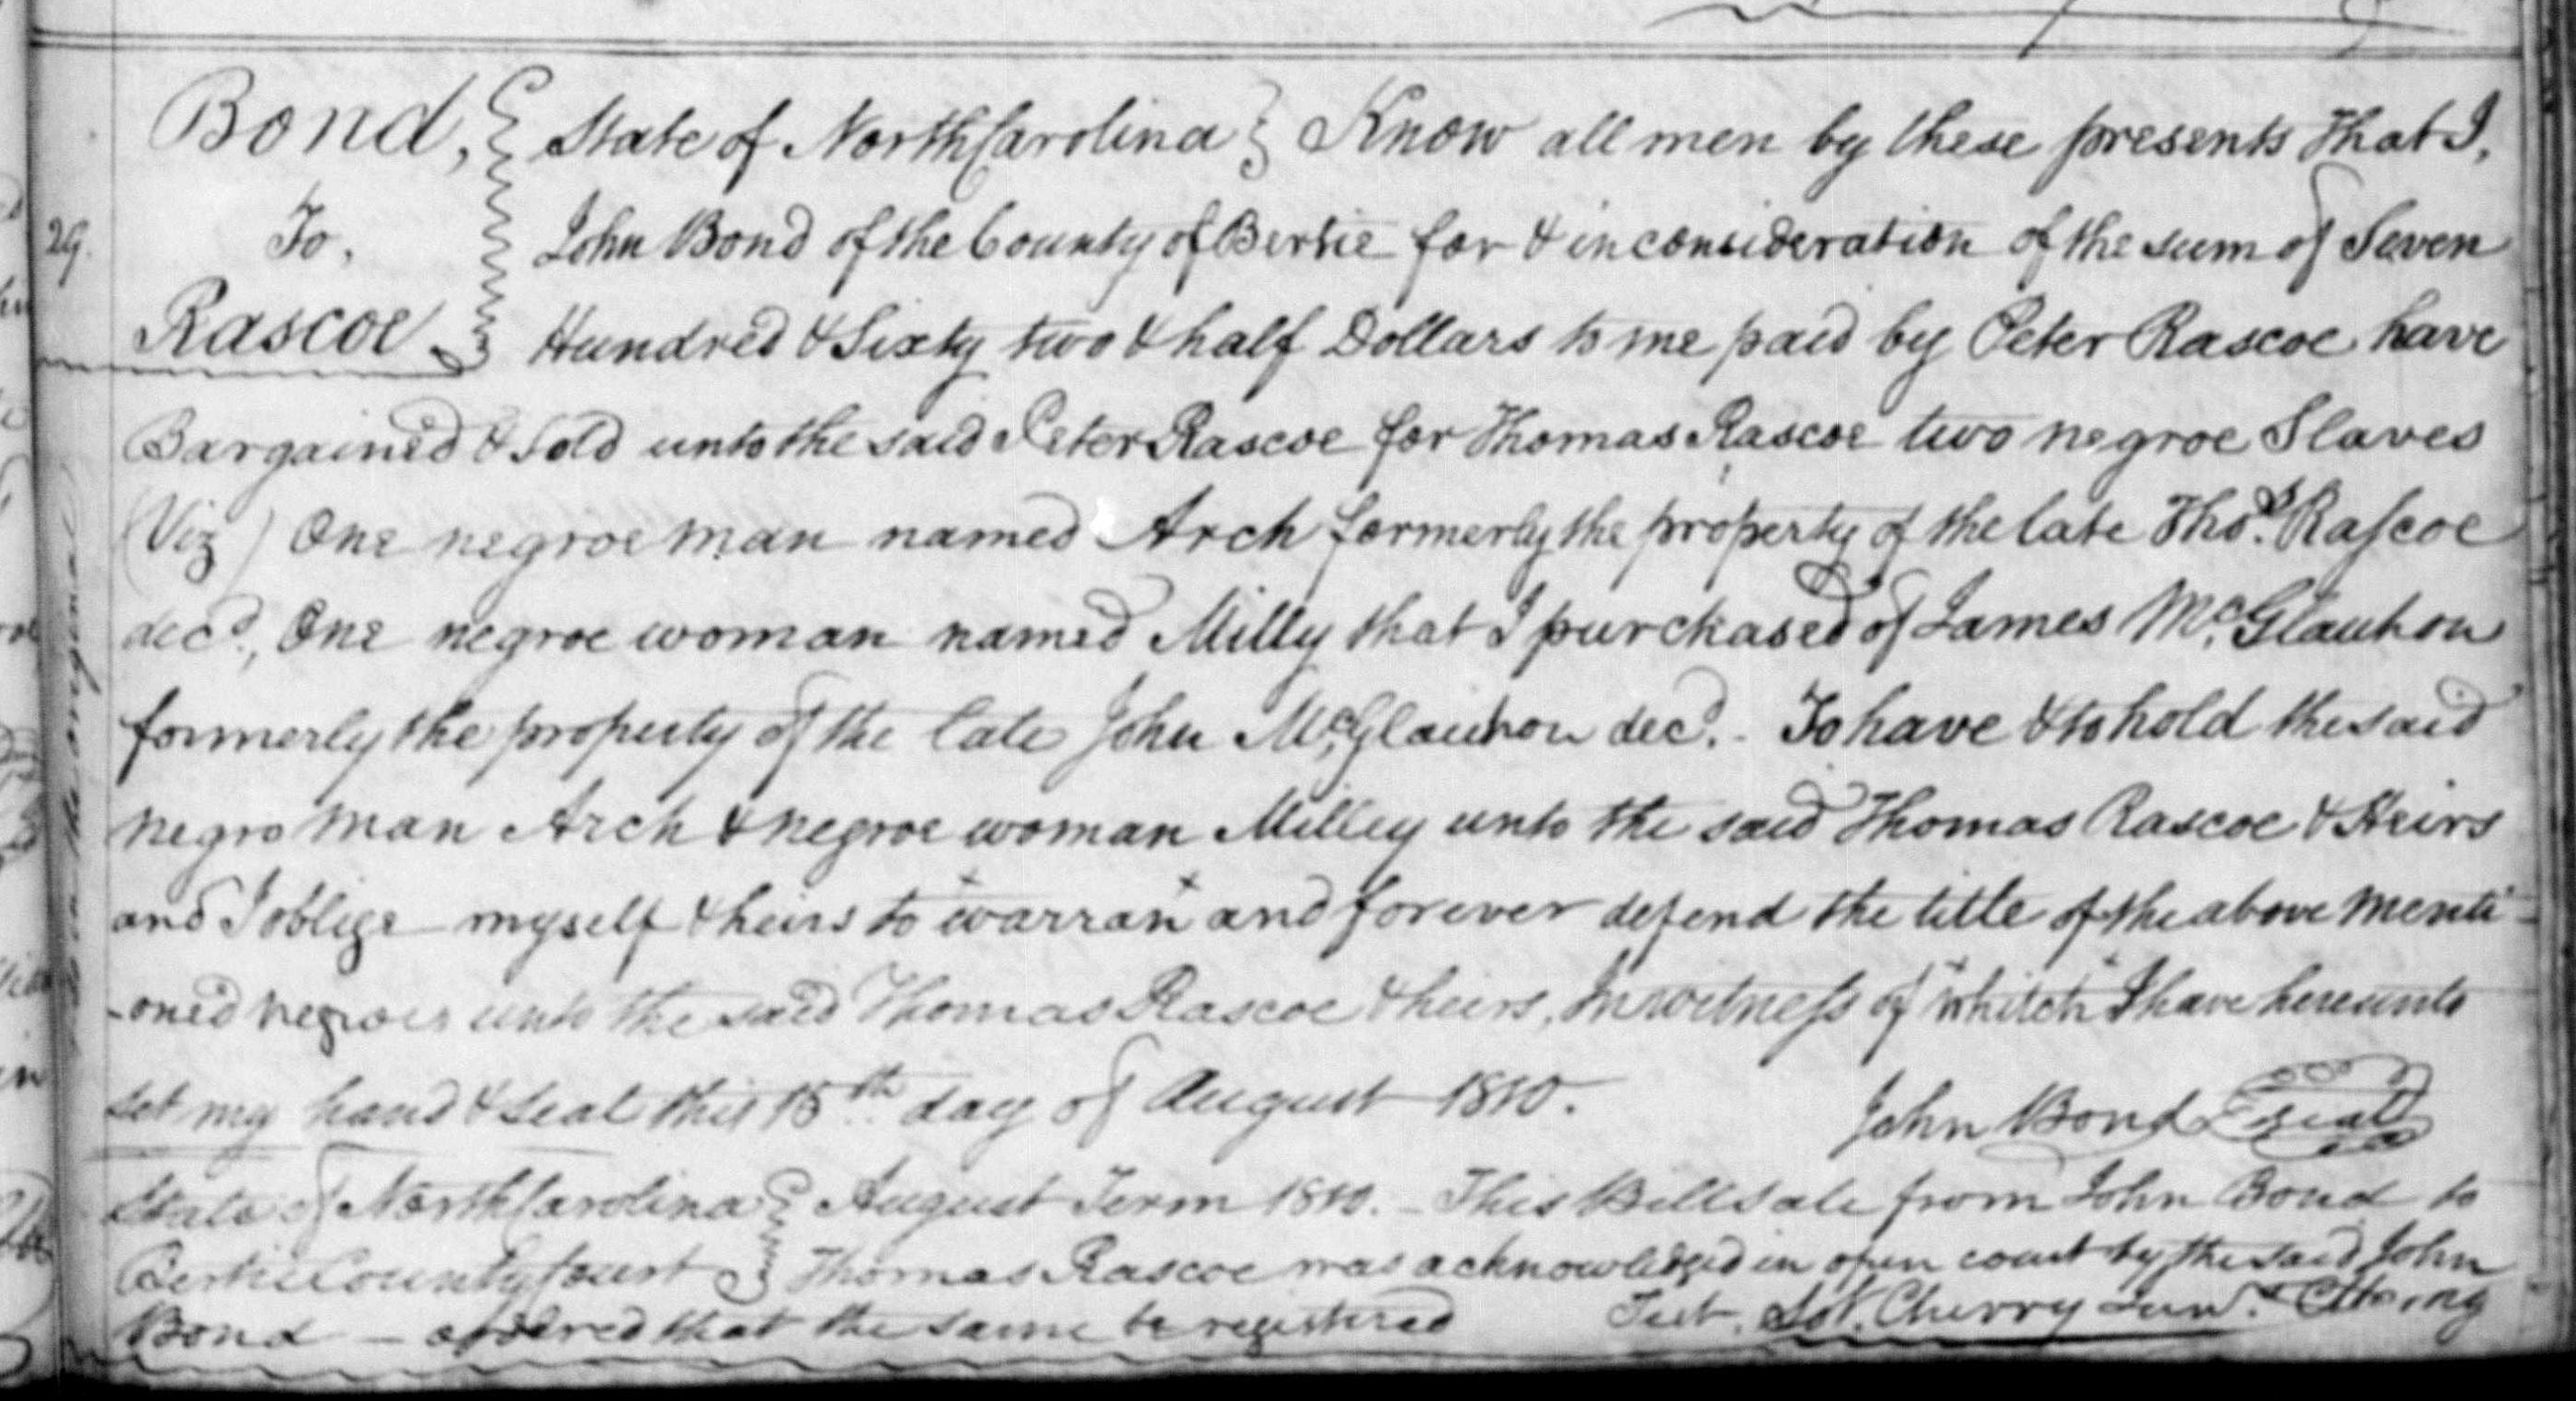 Bond, State of North Carolina Know all men by these presents that I,
29. To, John Bond of the County of Bertie for & in consideration of the sum of Seven
Rascoe Hundred & Sixty two & half Dollars to me paid by Peter Rascoe have
Bargained & Sold unto the said Peter Rascoe for Thomas Rascoe two negroe Slaves
(Viz) One negroe man named Arch formerly the property of the late Thos. Rascoe
decd., One negroe woman named Milly that I purchased of James Mc.Glauhon
formerly the property of the late John Mc.Glauhon decd. - To have & to hold the said
negro man Arch & negroe woman Milley unto the said Thomas Rascoe & Heirs
and I oblige myself & heirs to warran and forever defend the title of the above menti-
-oned negroes unto the said Thomas Rascoe & heirs, In witness of whitch I have hereunto
set my hand & seal this 15th day of August 1810. John Bond seal
State of North Carolina August Term 1810. - This Bill sale from John Bond to
Bertie County Court Thomas Rascoe was acknowledged in open court by the said John
Bond - ordered that the same be registered Test. Sol. Cherry Junr.